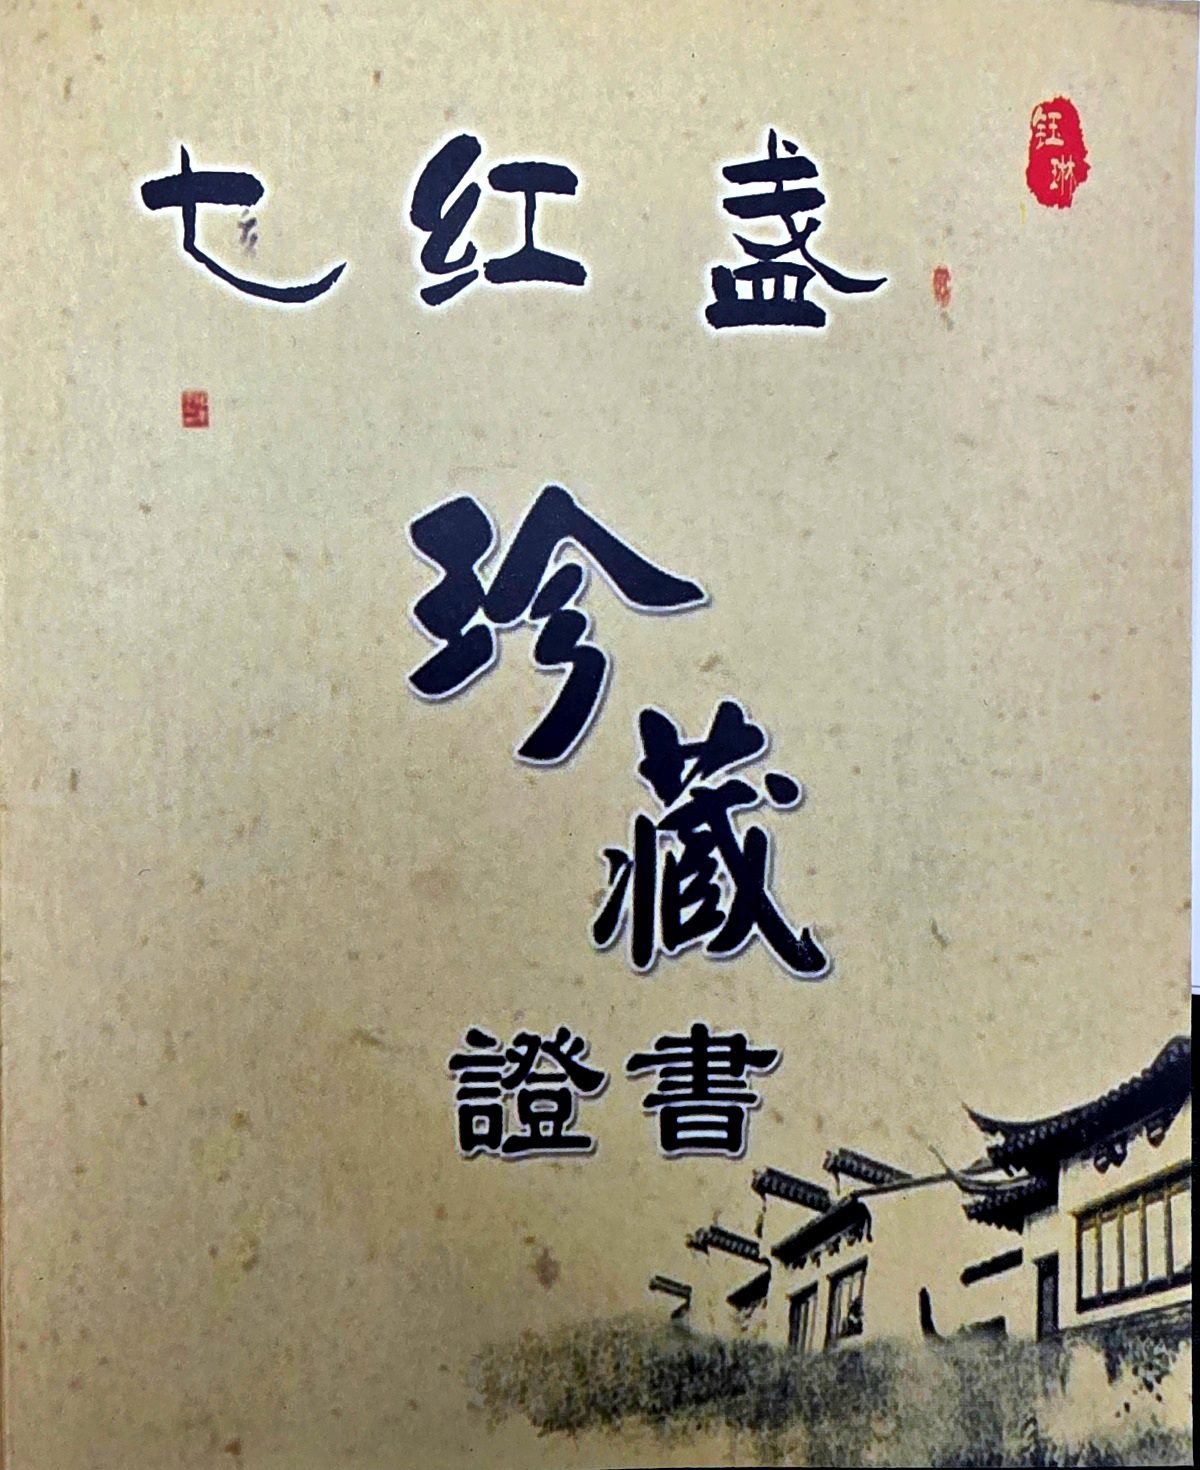 七红盏
钰
琳
珍
藏
證書